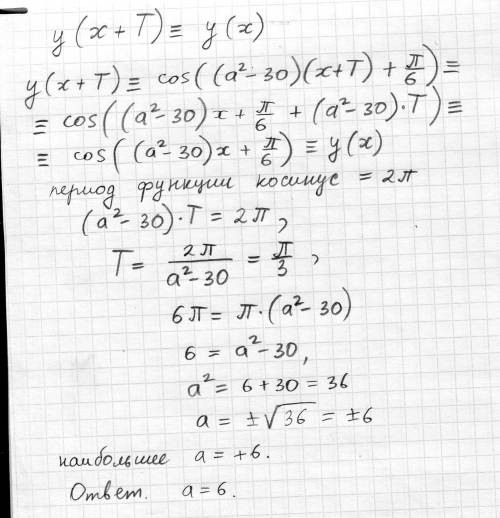 y(x+T) ≡ y(x)
y(x+T) ≡ cos((a²-30)(x+T) + π/6) ≡
≡ cos((a²-30)x + π/6 + (a²-30)·T) ≡
≡ cos((a²-30)x + π/6) ≡ y(x)
период функции косинус = 2π
(a²-30)·T = 2π,
T = 2π/(a²-30) = π/3,
6π = π·(a²-30)
6 = a²-30,
a² = 6+30 = 36
a = ±√36 = ±6
наибольшее a = +6.
Ответ. a = 6.